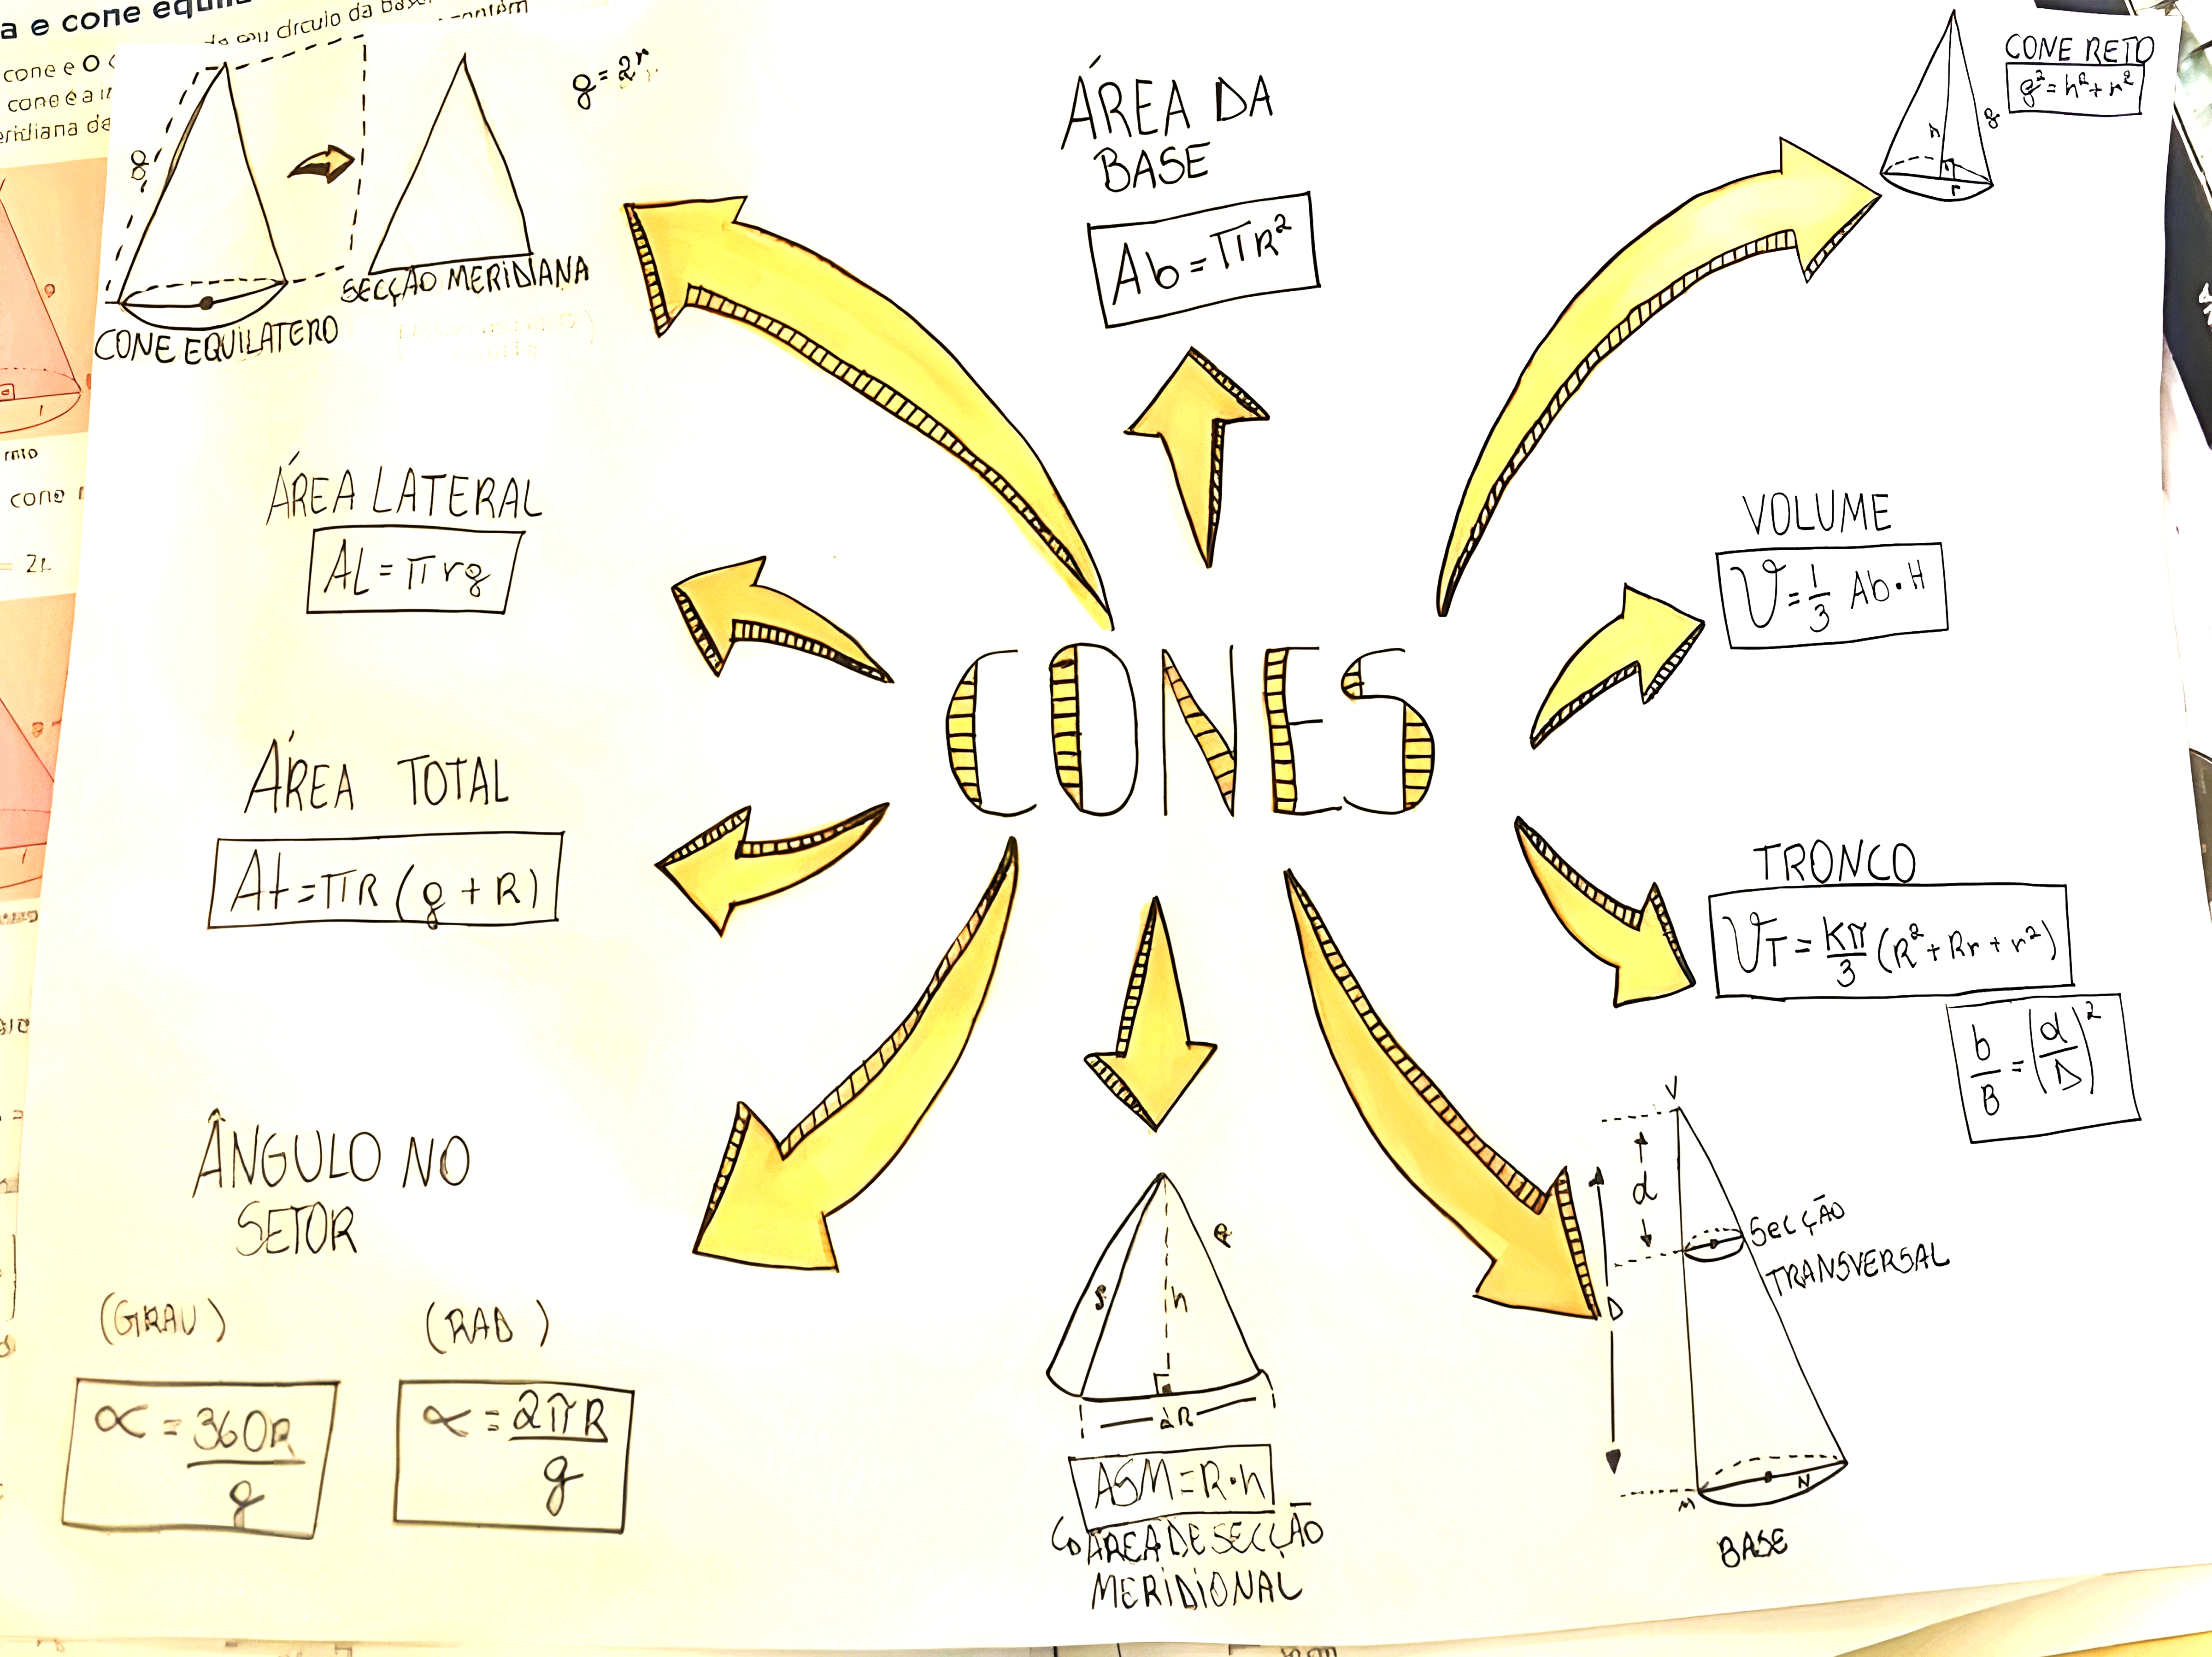 a e cone equilá
do seu círculo da base.
contém
cone e o
cone é a
eridiana de
reto
cone r
= 2r
g
g = 2r
CONE EQUILATERO
SECÇÃO MERIDIANA
ÁREA DA
BASE
Ab = πR²
CONE RETO
g² = h² + r²
h
g
r
ÁREA LATERAL
AL = πrg
VOLUME
V = 1/3 Ab · H
CONES
ÁREA TOTAL
At = πR (g + R)
TRONCO
VT = Kπ/3 (R² + Rr + r²)
b/B = (d/D)²
ÂNGULO NO
SETOR
(GRAU)
(RAD)
α = 360R/g
α = 2πR/g
h
2R
ASM = R · h
ÁREA DE SECÇÃO
MERIDIONAL
V
d
D
SECÇÃO
TRANSVERSAL
M
N
BASE